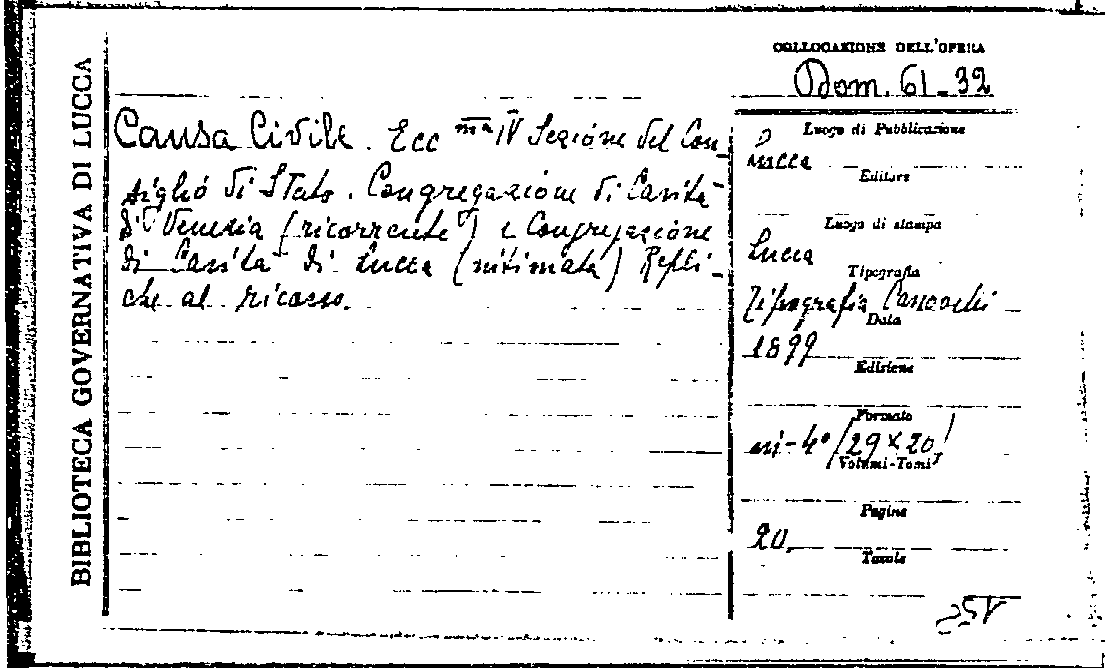 BIBLIOTECA GOVERNATIVA DI LUCCA
Causa Civile. Ecc ma IV Sezione del Con-
siglio di Stato. Congregazione di Carità
di Venezia (ricorrente) e Congregazione
di Carità di Lucca (intimata) Repli-
che al ricorso.
COLLOCAZIONE DELL'OPERA
Dom. 61-32
Luogo di Pubblicazione
Lucca
Editore
Luogo di stampa
Lucca
Tipografia
Tipografia Canovetti
Data
1899
Edizione
Formato
in-4° (29 x 20)
Volumi-Tomi
Pagine
20.
Tavole